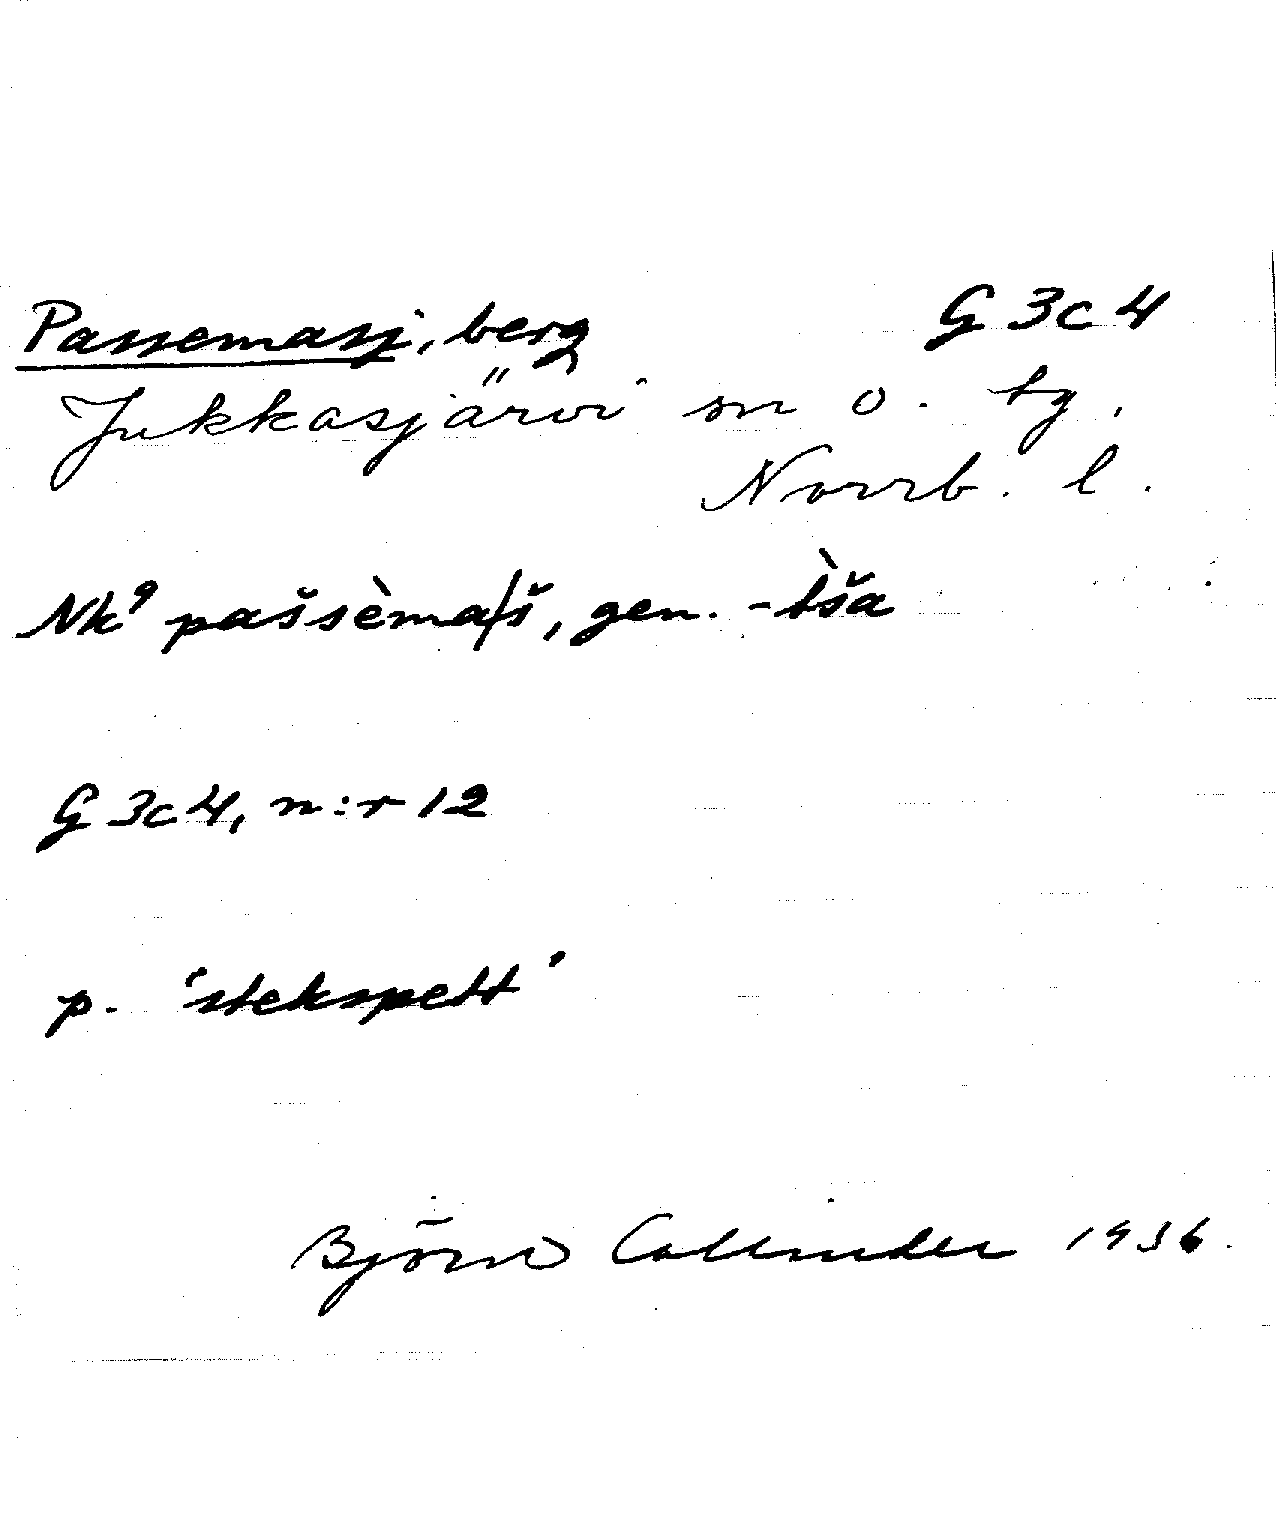 Passemasj, berg G 3c 4
Jukkasjärvi sn o. tg.
Norrb. l.
Nk⁹ pašsèma/š, gen. -t̀ša
G 3c 4, n:r 12
p. 'stekspett'
Björn Collinder 1936.